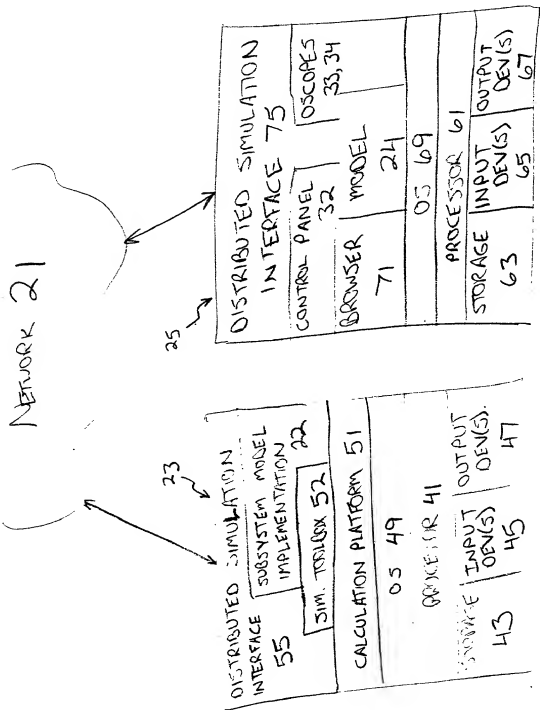 NETWORK 21
23
DISTRIBUTED SIMULATION
INTERFACE
55
SUBSYSTEM MODEL
IMPLEMENTATION
22
SIM. TOOLBOX 52
CALCULATION PLATFORM 51
OS 49
PROCESSOR 41
STORAGE
43
INPUT
DEV(S)
45
OUTPUT
DEV(S).
47
25
DISTRIBUTED SIMULATION
INTERFACE 75
CONTROL PANEL
32
OSCOPES
33,34
BROWSER
71
MODEL
24
OS 69
PROCESSOR 61
STORAGE
63
INPUT
DEV(S)
65
OUTPUT
DEV(S)
67